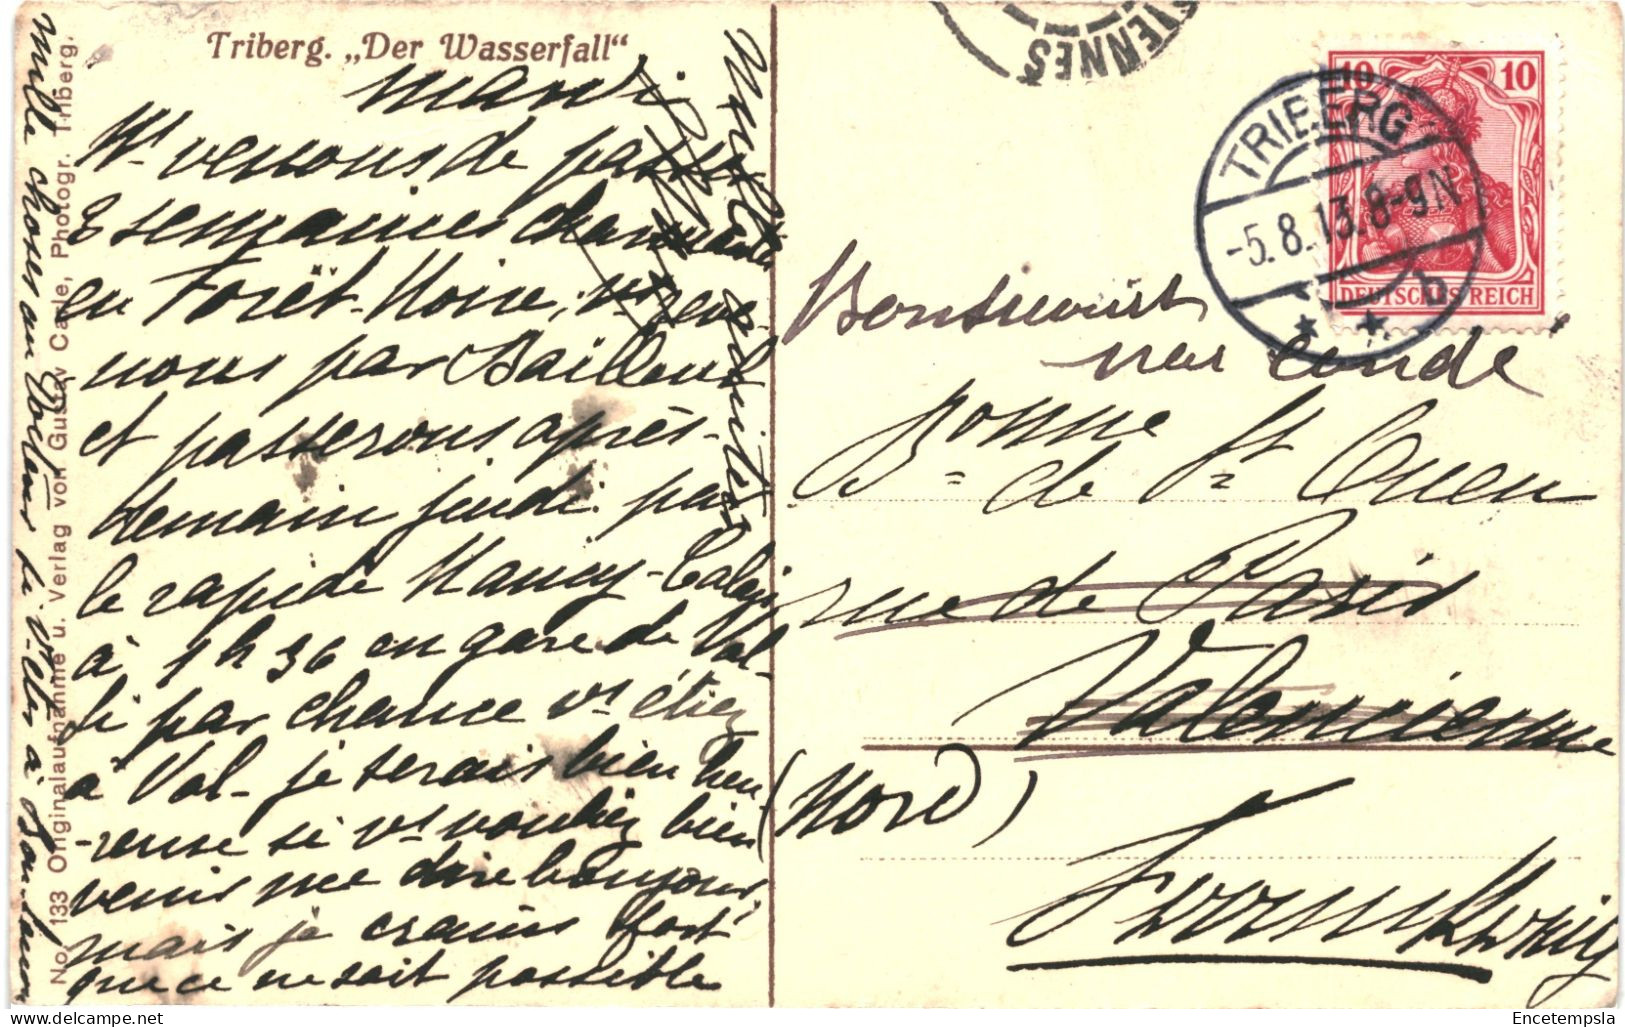 Triberg. „Der Wasserfall“
mardi
Ns venons de passer
3 semaines charmantes
en Forêt-Noire, ns reve-
nous par Bailleul
et passerons après-
demain jeudi par
le rapide Nancy-Calais
à 1h36 en gare de Val-
si par chance vs étiez
à Val- je serais bien heu-
-reuse si vs vouliez bien
venir me dire bonjour,
mais je crains fort
que ce ne soit possible
mille choses au Docteur si vs êtes à
No. 133 Originalaufnahme u. Verlag von Gustav Carle, Photogr. Triberg.
IENNES
10 10
DEUTSCHES REICH
TRIBERG
-5.8.13.8-9N
b
* *
Bonsecours
par Condé
Bonne
Bnne de St Ouen
rue de Paris
Valenciennes
(Nord)
Frankreich